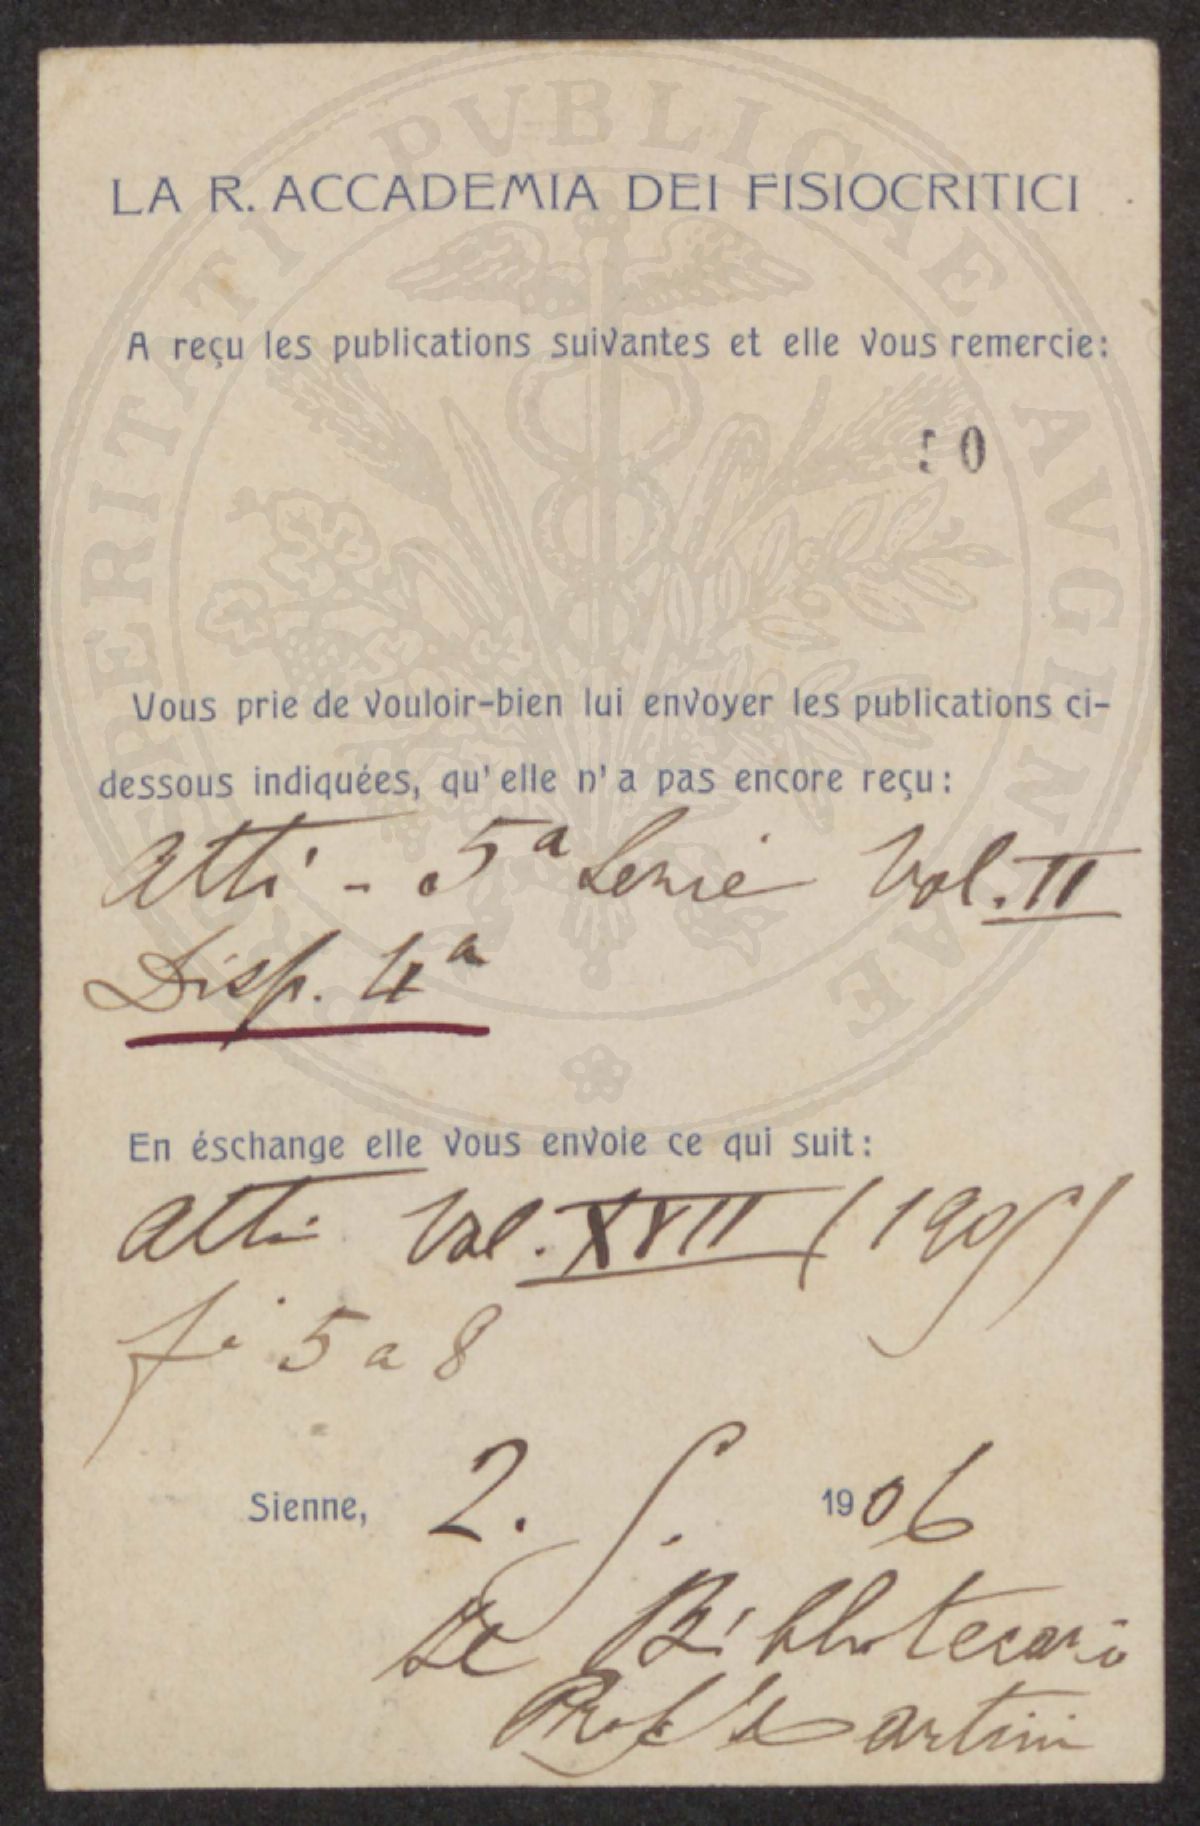 LA R. ACCADEMIA DEI FISIOCRITICI
A reçu les publications suivantes et elle vous remercie:
50
Vous prie de vouloir-bien lui envoyer les publications ci-
dessous indiquées, qu'elle n'a pas encore reçu:
Atti - 5ª Serie Vol. II
Disp. 4ª
En éschange elle vous envoie ce qui suit:
Atti Vol. XVII (1905)
fi 5 a 8
Sienne, 2. 5. 1906
Il Bibliotecario
Prof
PROSPERITATI PVBLICAE AVGENDAE